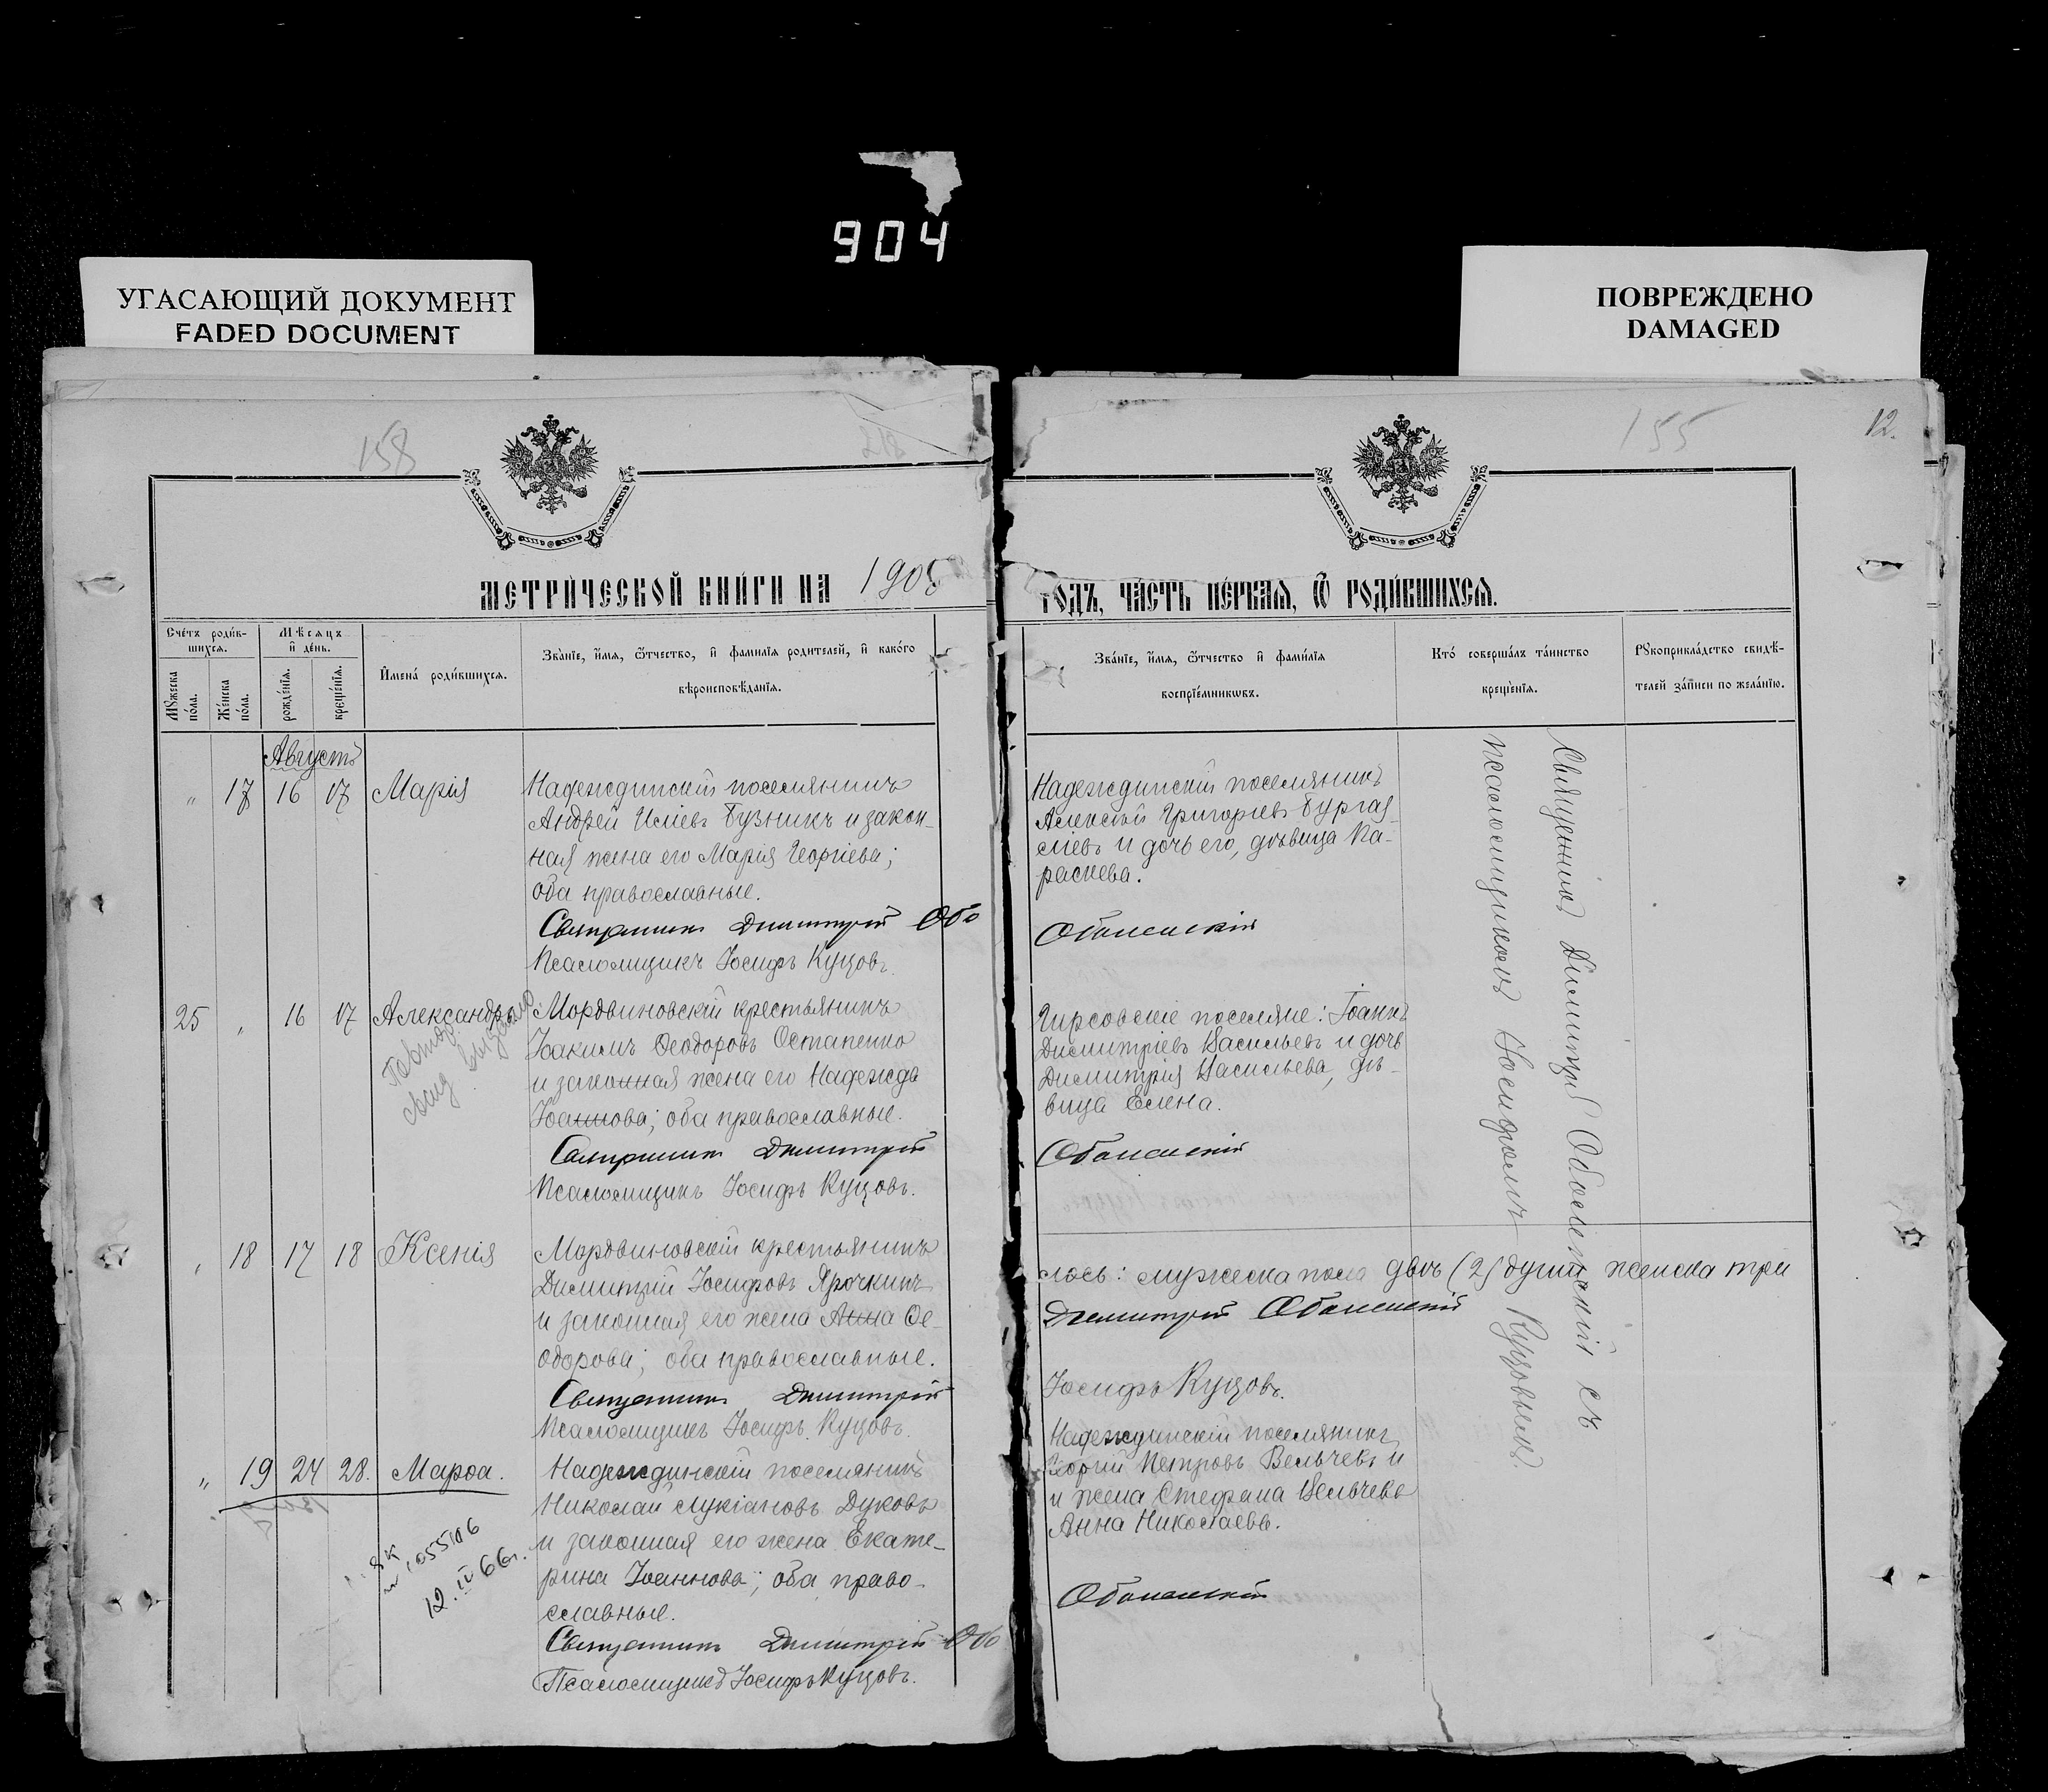 904
УГАСАЮЩИЙ ДОКУМЕНТ
FADED DOCUMENT
ПОВРЕЖДЕНО
DAMAGED
158
155
12.
МЕТРИЧЕСКОЙ КНИГИ НА 1905
ГОДЪ, ЧАСТЬ ПЕРВАЯ, Ѿ РОДИВШИХСЯ.
Счетъ родив-
шихся.
Мѣсяцъ
и день.
Мужеска
пола.
Женска
пола.
рожденія.
крещенія.
Имена родившихся.
Званіе, имя, ѿтчество, и фамилія родителей, и какого
вѣроисповѣданія.
Званіе, имя, ѿтчество и фамилія
воспріемниковъ.
Кто совершалъ таинство
крещенія.
Рукоприкладство свидѣ-
телей записи по желанію.
Августъ
" 17 16 17 Марія
Надеждинскій поселянинъ
Андрей Иліевъ Бузникъ и закон-
ная жена его Марія Георгіева;
оба православные.
Священникъ Димитрій Обо
Псаломщикъ Іосифъ Куцовъ.
Надеждинскій поселянинъ
Алексѣй Григорьевъ Бургая
сліевъ и дочь его, дѣвица Па-
раскева.
25 " 16 17 Александръ
Повтор.
свид. выдано
Мордвиновскій крестьянинъ
Іоакимъ Ѳеодоровъ Остапенко
и законная жена его Надежда
Іоаннова; оба православные.
Священникъ Димитрій
Псаломщикъ Іосифъ Куцовъ.
Гирсовскіе поселяне: Іоаннъ
Димитріевъ Васильевъ и дочь
Димитрія Васильева, дѣ-
вица Елена.
" 18 17 18 Ксенія
Мордвиновскій крестьянинъ
Димитрій Іосифовъ Ярочкинъ
и законная его жена Анна Ѳе-
одорова; оба православные.
Священникъ Димитрій
Псаломщикъ Іосифъ Куцовъ.
лось: мужеска пола двѣ (2) души женска три
Димитрій
Іосифъ Куцовъ.
" 19 24 28. Марѳа.
055106
12.IV 66г.
Надеждинскій поселянинъ
Николай Лукіановъ Дуковъ
и законная его жена Екате-
рина Іоаннова; оба право-
славные.
Священникъ Димитрій Обо
Псаломщикъ Іосифъ Куцовъ.
Надеждинскій поселянинъ
Георгій Петровъ Вельчевъ и
и жена Стефана Вельчева
Анна Николаева.
Священникъ Димитрій съ
псаломщикомъ Іосифомъ Куцовымъ.